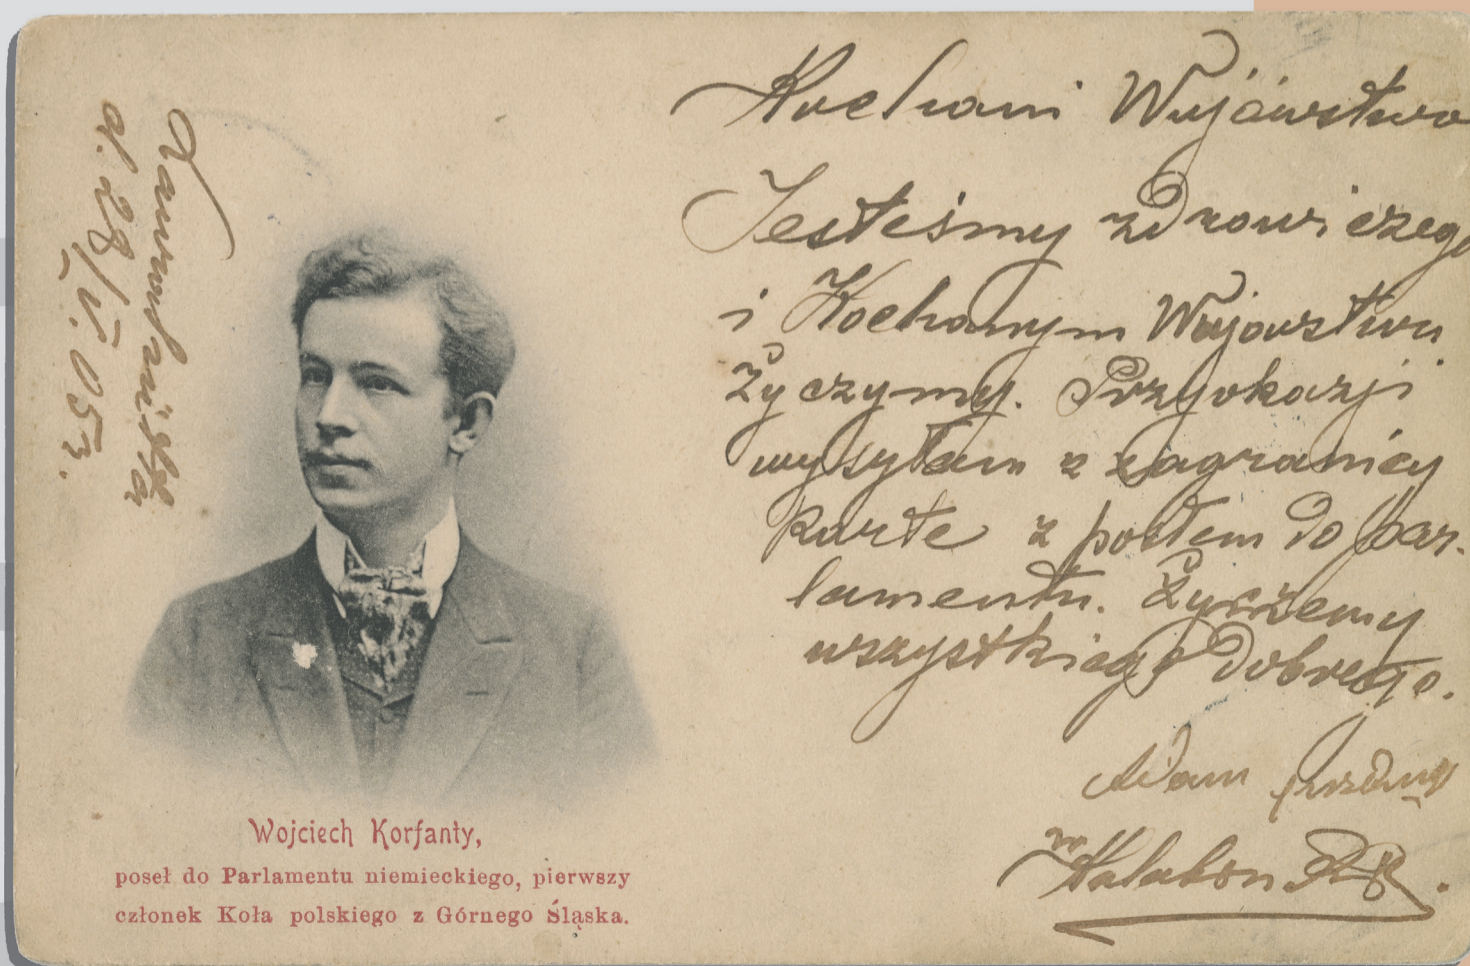 Kochani Wujówstwo
Jesteśmy zdrowi czego
i Kochanym Wujowstwu
życzymy. Przyokazji
wysyłam z zagranicy
kartę z posłem do par-
lamentu. Życzemy
wszystkiego dobrego.
Adam
d. 28/V. 03.
Wojciech Korfanty,
poseł do Parlamentu niemieckiego, pierwszy
członek Koła polskiego z Górnego Śląska.